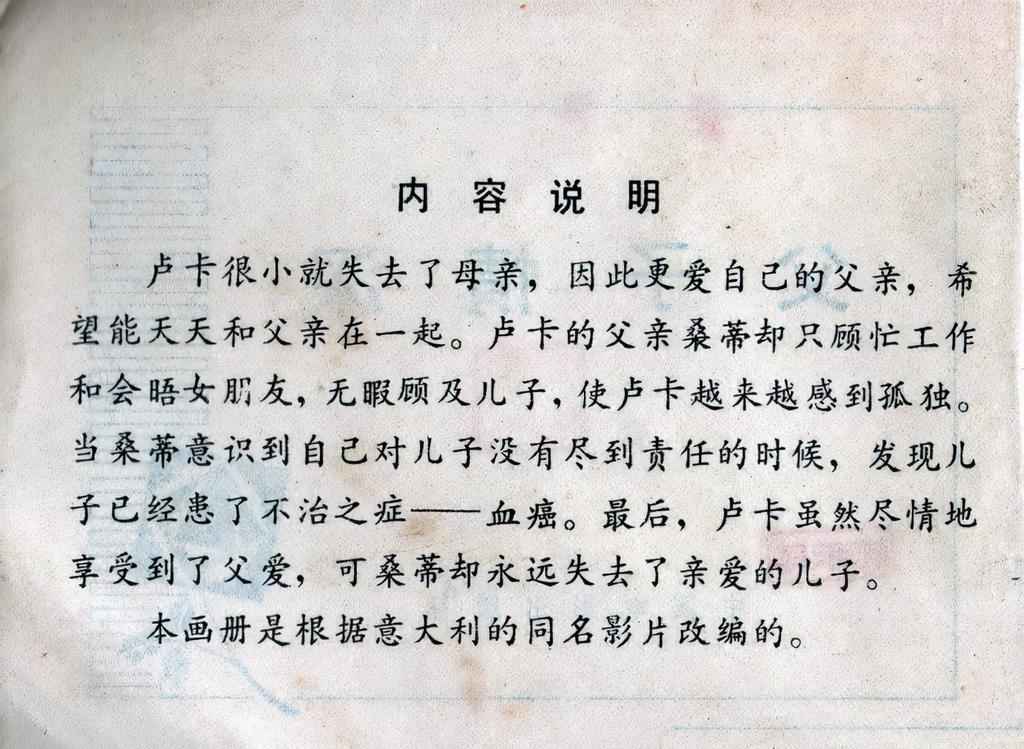 内容说明
卢卡很小就失去了母亲，因此更爱自己的父亲，希
望能天天和父亲在一起。卢卡的父亲桑蒂却只顾忙工作
和会晤女朋友，无暇顾及儿子，使卢卡越来越感到孤独。
当桑蒂意识到自己对儿子没有尽到责任的时候，发现儿
子已经患了不治之症——血癌。最后，卢卡虽然尽情地
享受到了父爱，可桑蒂却永远失去了亲爱的儿子。
本画册是根据意大利的同名影片改编的。